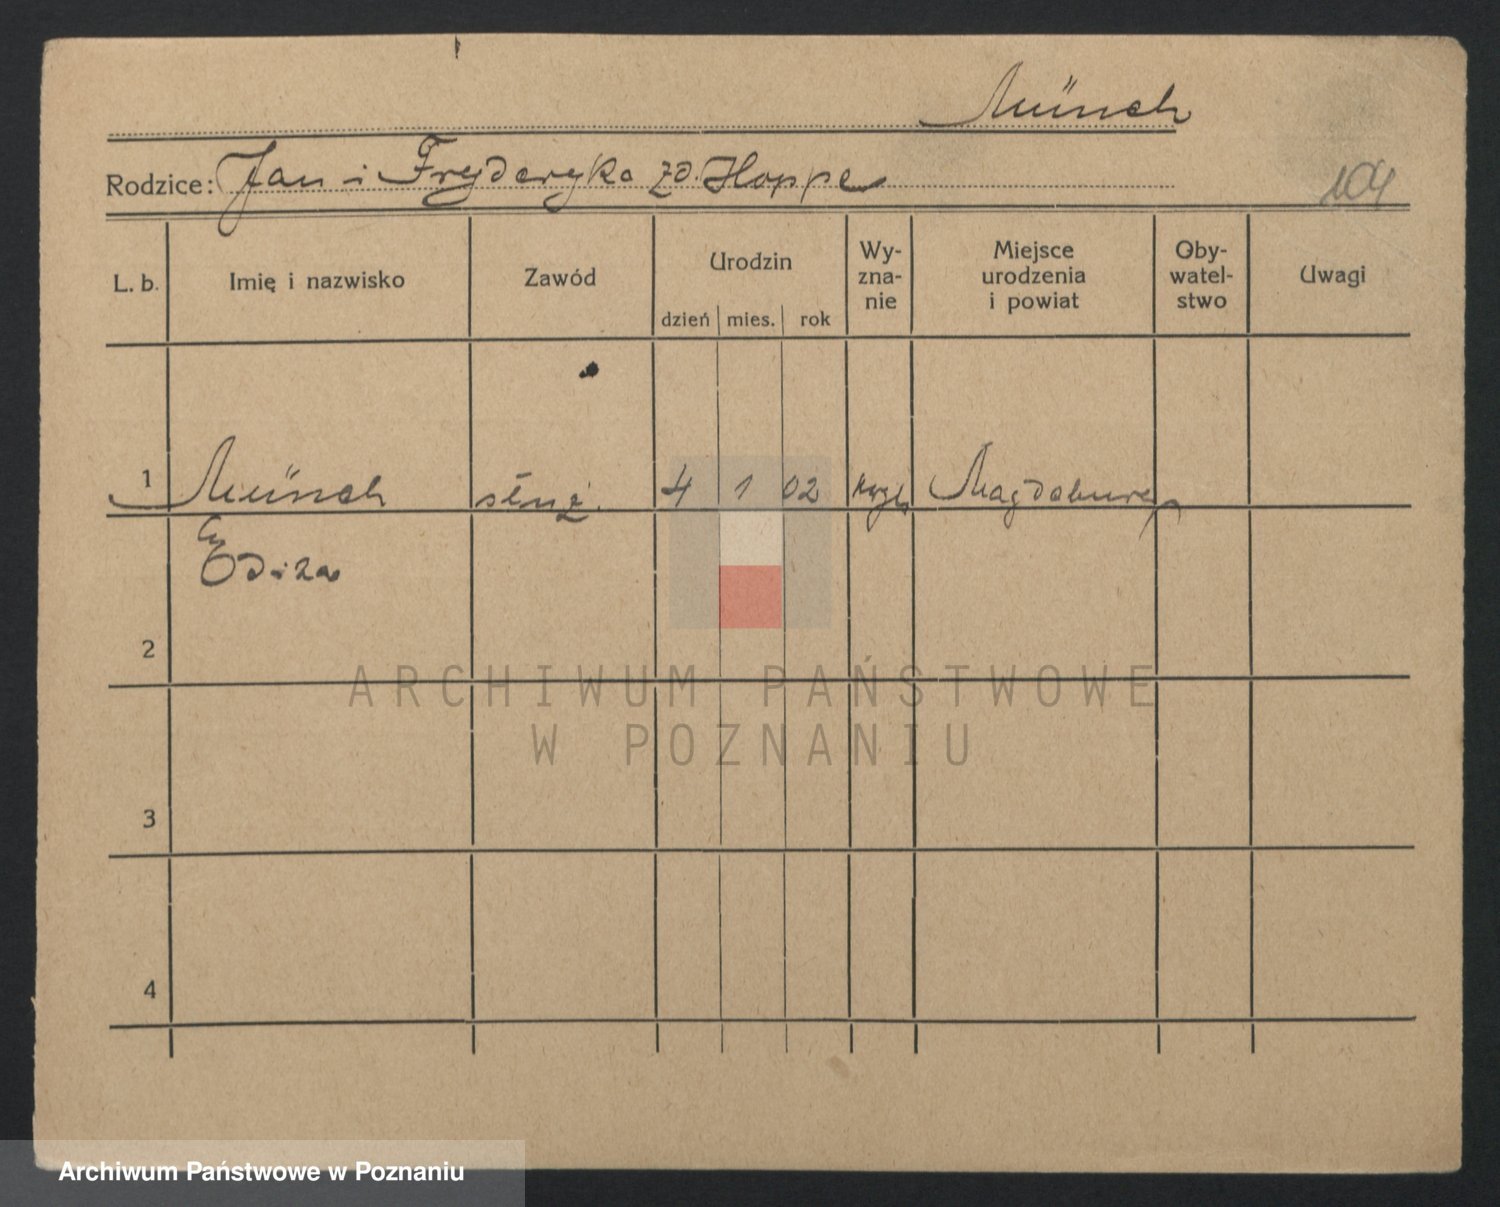 Münch
Rodzice: Jan i Fryderyka zd. Hoppe
104
L. b. Imię i nazwisko Zawód Urodzin dzień mies. rok Wy-zna-nie Miejsce urodzenia i powiat Oby-watel-stwo Uwagi
1 Münch służ. 4 1 02 Magdeburg
Ediza
2
ARCHIWUM PAŃSTWOWE
W POZNANIU
3
4
Archiwum Państwowe w Poznaniu